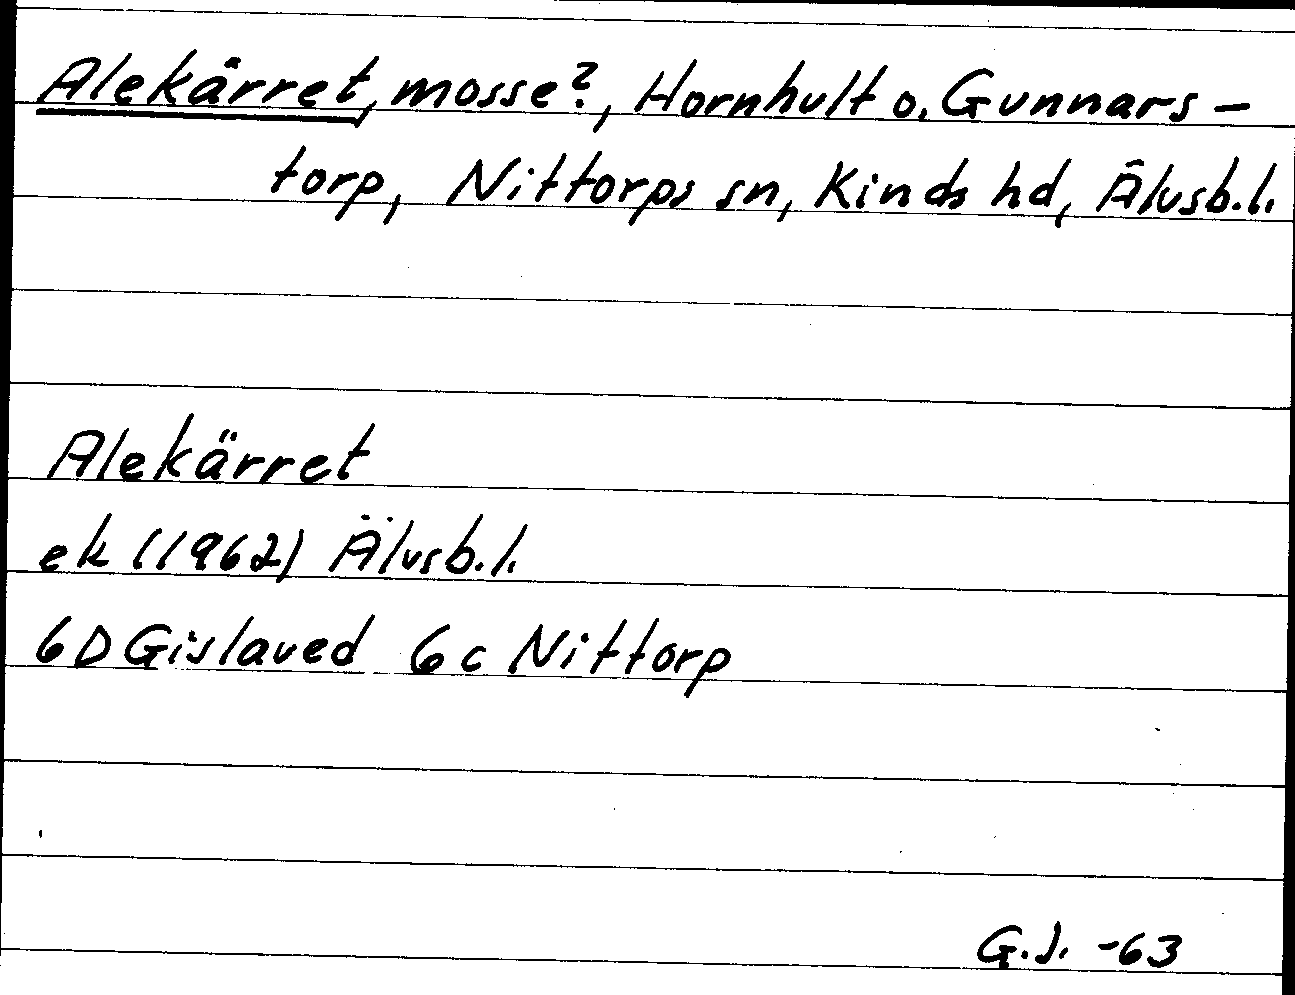 Alekärret, mosse?, Hornhult o. Gunnars-
torp, Nittorps sn, Kinds hd, Älvsb.l.
Alekärret
ek (1962) Älvsb.l.
6D Gislaved 6c Nittorp
G.J. -63